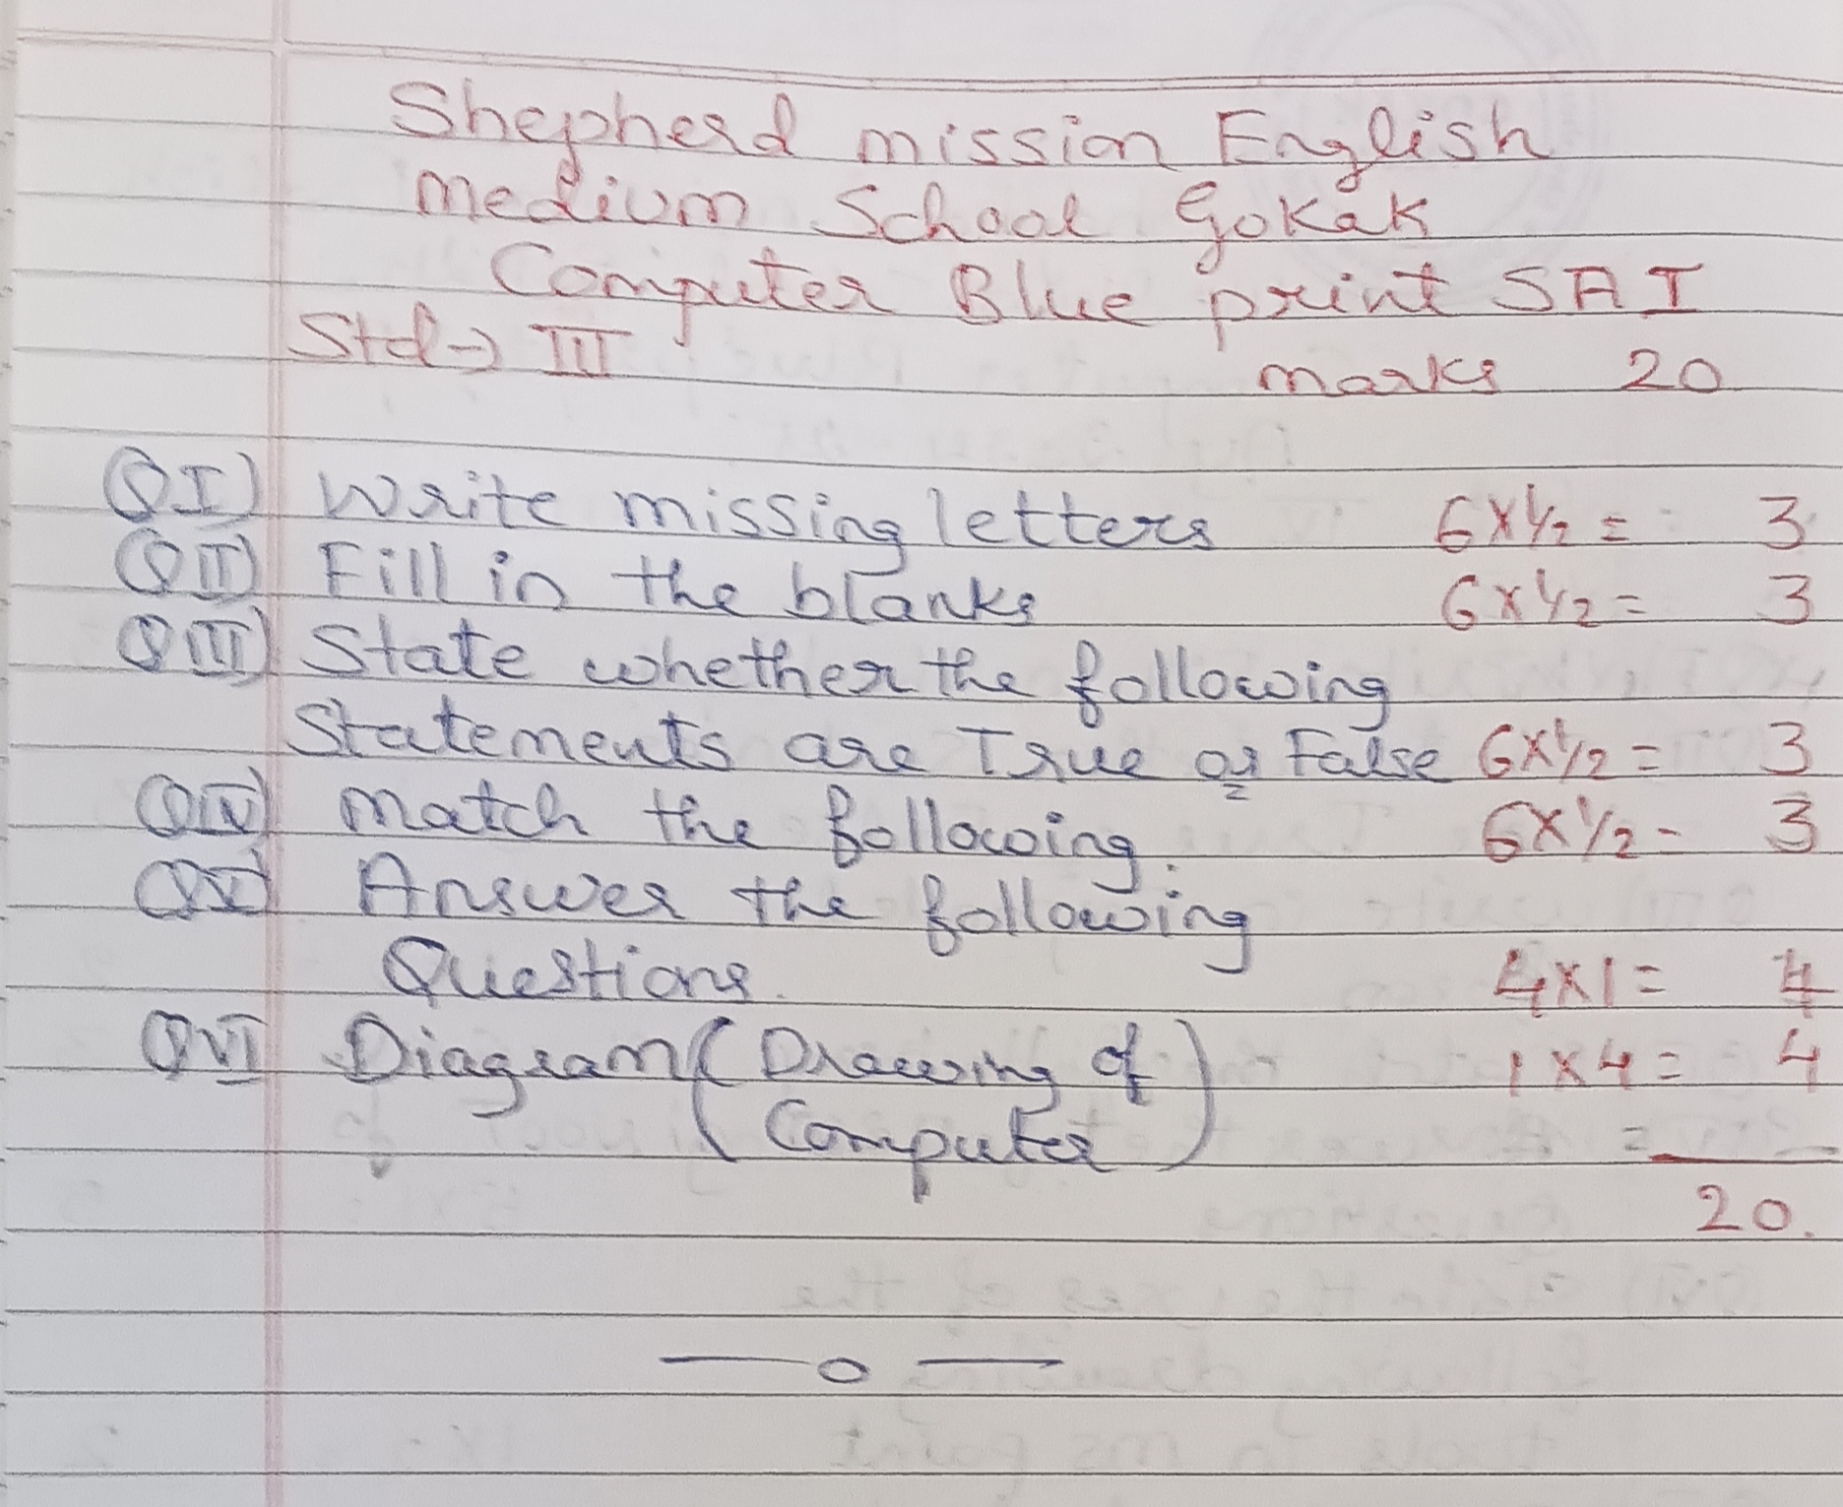 Shepherd mission English
medium School Gokak
Computer Blue print SA I
Std → III
marks 20
QI) Write missing letters 6×1/2 = 3
QII) Fill in the blanks 6×1/2 = 3
QIII) State whether the following
Statements are True or False 6×1/2 = 3
QIV) match the following. 6×1/2 - 3
QV) Answer the following
Questions. 4×1 = 4
QVI Diagram (Drawing of 1×4 = 4
Computer)
=
20.
—o—